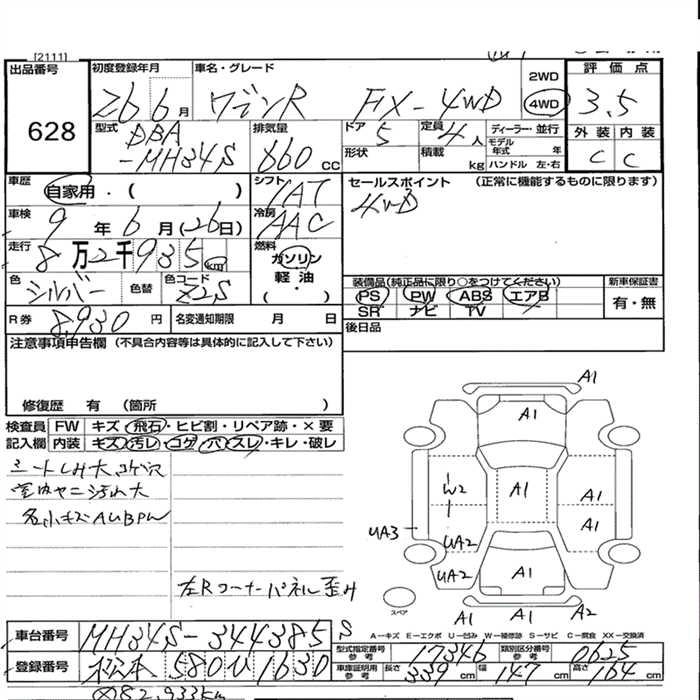 [2111]
出品番号
628
初度登録年月 26 6 月
車名・グレード ワゴンR FX-4WD
2WD
4WD
評価点
3.5
外装 内装
C C
型式 DBA
-MH34S
排気量 660 cc
ドア 5
形状
定員 4 人
積載 kg
ディーラー・並行
モデル年式 年
ハンドル 左・右
車歴 自家用・( )
シフト IAT
車検 9 年 6 月 (26日)
冷房 AAC
走行 8 万 2 千 9 3 5 km
燃料 ガソリン
軽油
( ・ )
色 シルバー 色替 色コード Z2S
R券 8,930 円 名変通知期限 月 日
セールスポイント (正常に機能するものに限ります)
4WD
装備品(純正品に限り○をつけてください)
PS PW ABS エアB
SR ナビ TV
新車保証書
有・無
後日品
注意事項申告欄 (不具合内容等は具体的に記入して下さい)
修復歴 有 (箇所 )
検査員 FW キズ・飛石・ヒビ割・リペア跡・×要
記入欄 内装 キズ・汚レ・コゲ・穴・スレ・キレ・破レ
シートしみ大コゲ穴
室内ヤニ汚れ大
各小キズAUBPW
左Rコーナーパネル歪み
A1
A1
A1
W2
A1
A1
UA3
UA2
UA2
A1
A1 A1 A2
スペア
A-キズ E-エクボ U-凹み W-補修跡 S-サビ C-腐食 XX-交換済
車台番号 MH34S-344385 S
型式指定番号 参考 17346 類別区分番号 参考 0625
登録番号 松本 580 ひ 1630
車庫証明用 参考 長さ 339 cm 幅 147 cm 高さ 164 cm
82,933km